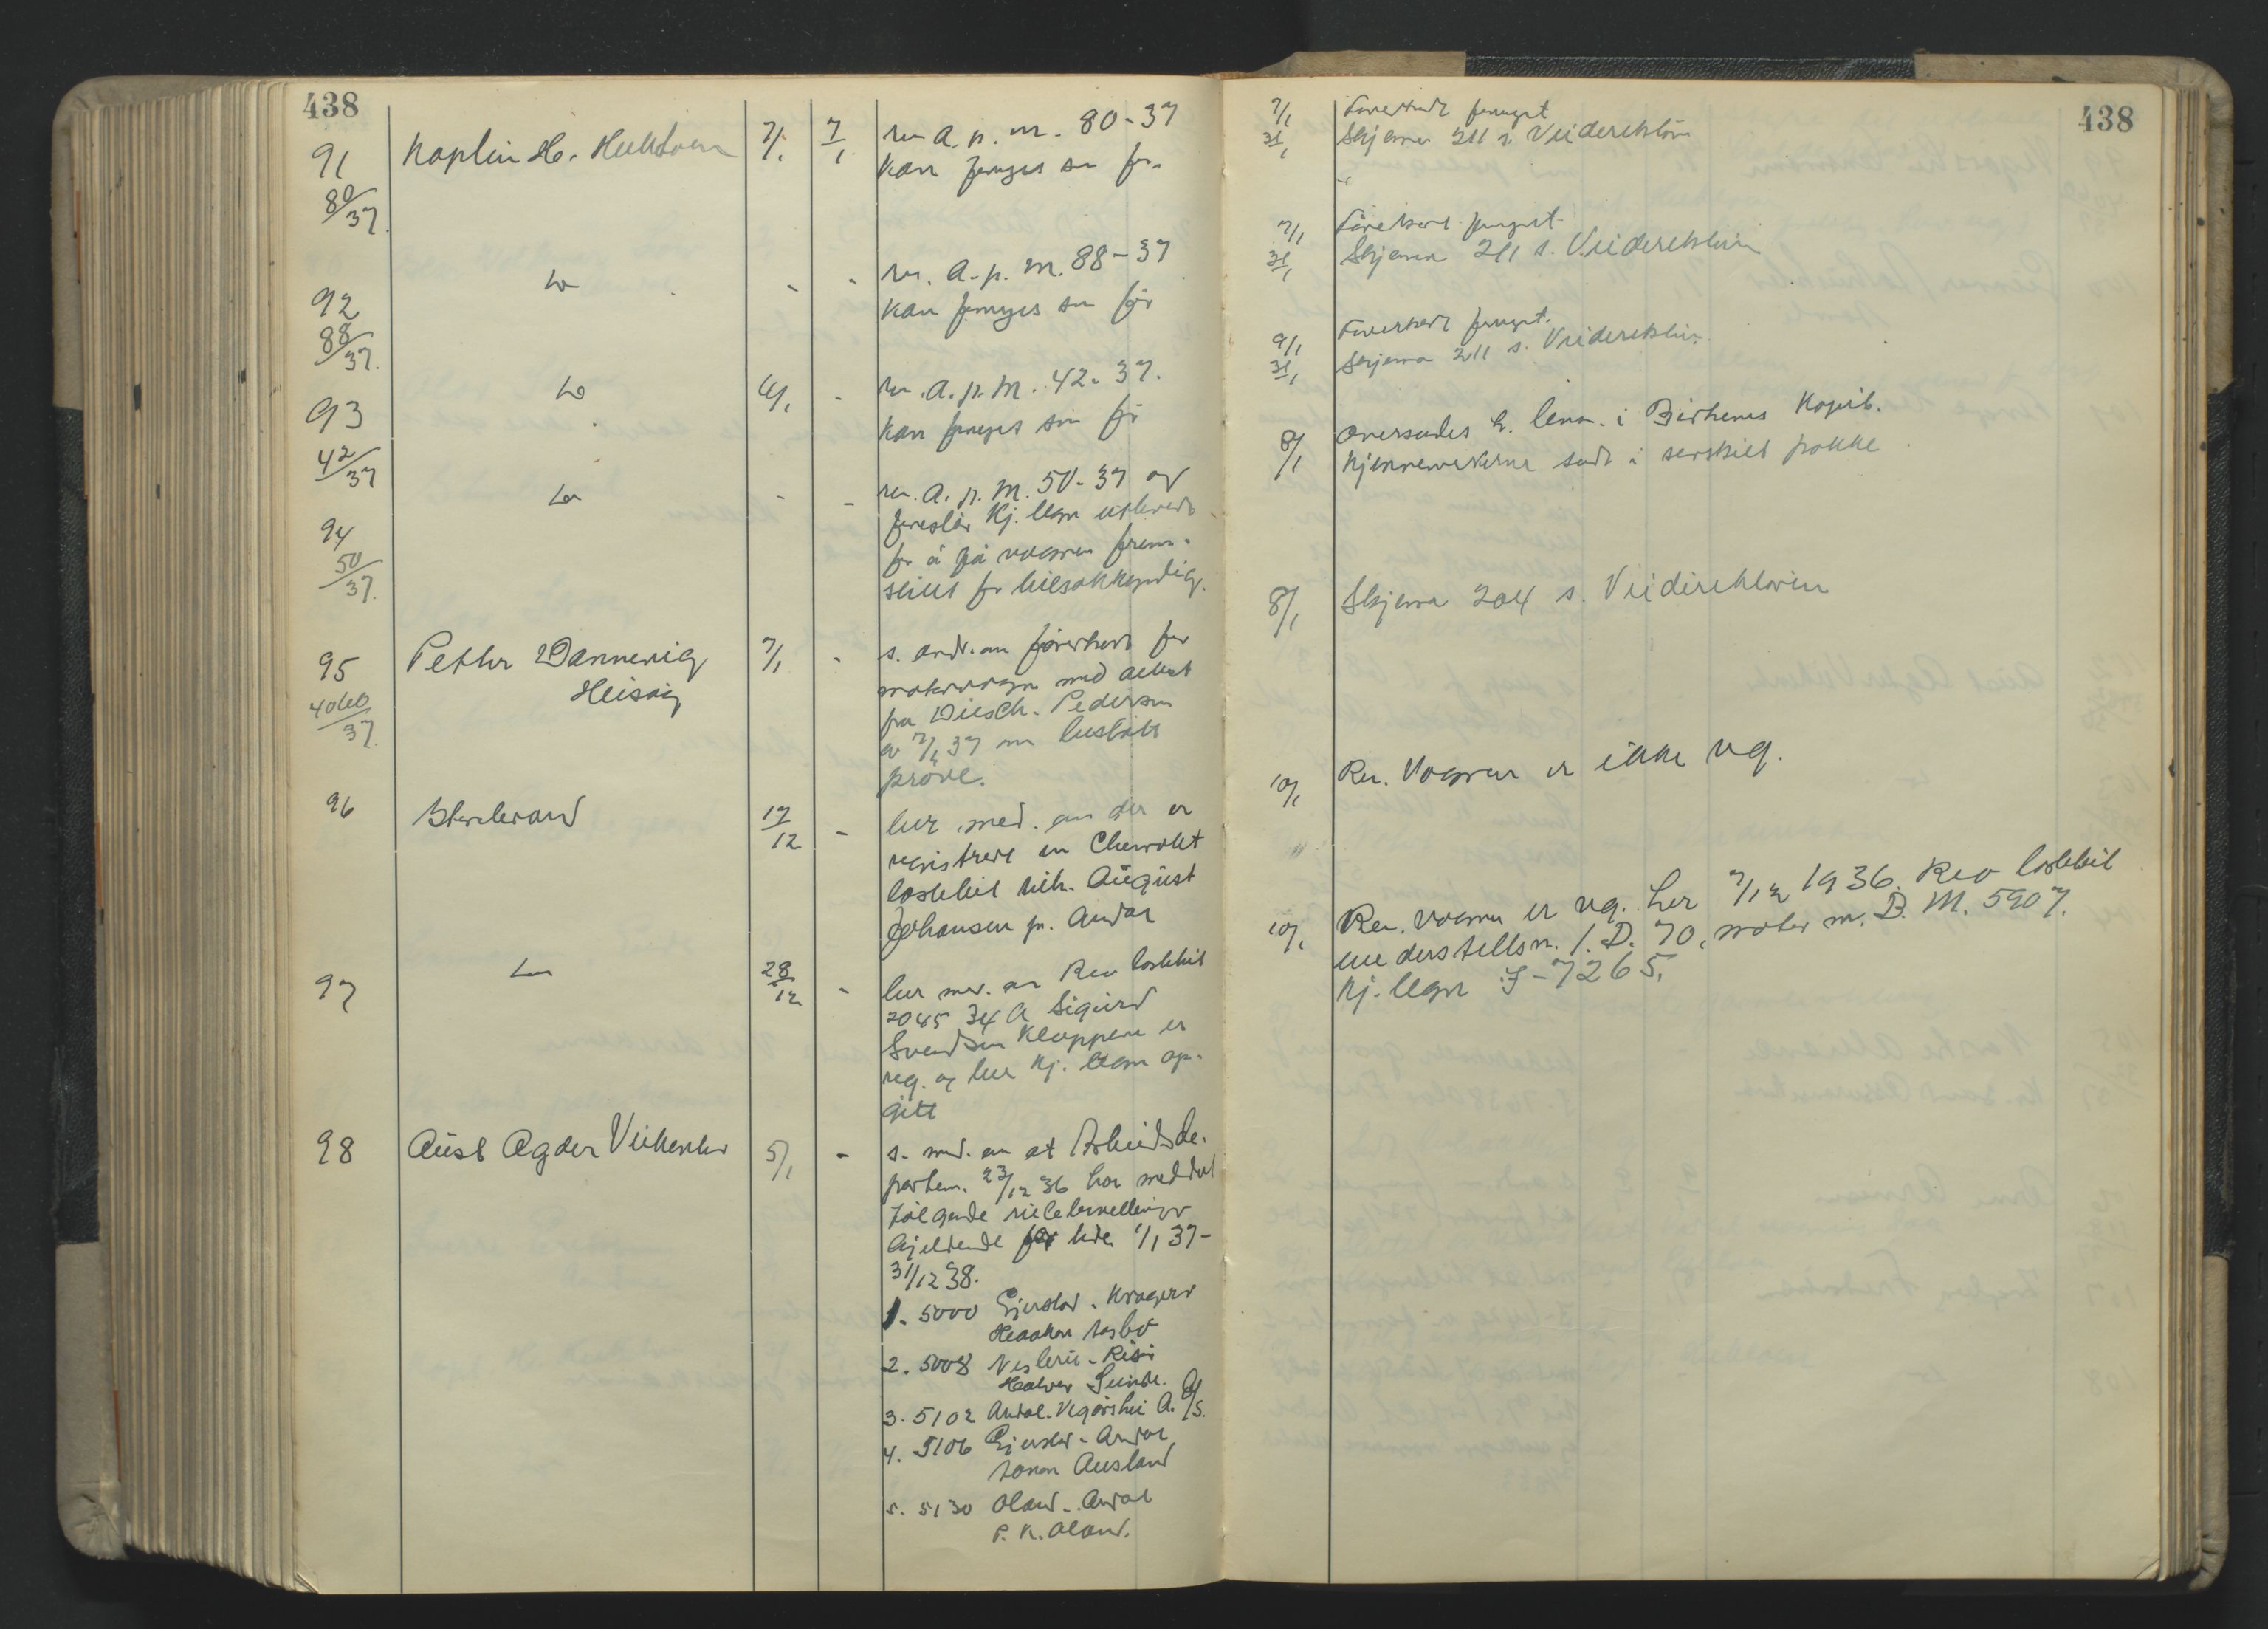 438
91
80/37
Kaplin H.
7/1
7/1
rer a. p. m. 80-37
kan fornyes som før
92
88/37.
Do
-
-
rer. a. p. m. 88-37
kan fornyes som før
93
42/37
Do
6/1
-
rer. a. p. m. 42-37.
kan fornyes som før
94
50/37.
Do
-
-
rer. a. p. m. 50-37 og
foreslår Kj. tegn
for å få vognen frem-
stillet for bilsakkyndig.
95
4060/37.
Petter Dannevig
Heisvig
7/1
-
s. andr. om førerkort for
motorvogn med attest
fra Diesch. Pedersen
av 7/1 37 om bestått
prøve.
96
17/12
-
ber med. om der er
registrert en Chevrolet
lastebil tilh. August
Johansen pr. Arendal
97
Do
28/12
-
ber med. om Reo lastebil
2045 34 A Sigurd
Svendsen Kloppene er
reg. og ber Kj. tegn op-
gitt
98
Aust Agder Veikontor
5/1
-
s. med. om at Arbeidsde-
partem. 23/12 36 har meddelt
følgende rutebevillinger
gjeldende for tiden 1/1 37-
31/12 38.
1. 5000 Gjerstad - Kragerø
Haakon
2. 5008 Vesterøi - Risør
Halvor Sunde.
3. 5102 Arendal - Vegårshei A. A/S.
4. 5106 Gjerstad - Arendal
Ausland
5. 5130 Oland - Arendal
P. K. Oland.
438
7/1 Førerkort fornyet
31/1 Skjema 211 s. Veidirektøren
7/1 Førerkort fornyet
31/1 Skjema 211 s. Veidirektøren
9/1 Førerkort fornyet.
31/1 Skjema 211 s. Veidirektøren
8/1 Oversendes h. lensm. i Birkenes Kopib.
Kjennemerkerne sendt i særskilt pakke
8/1 Skjema 204 s. Veidirektøren
10/1 Rer. Vognen er ikke reg.
10/1 Rer. vognen er reg. her 7/12 1936. Reo lastebil
understellsnr. 1. D. 70, motor nr. D. M. 5907.
Kj. tegn I-7265.